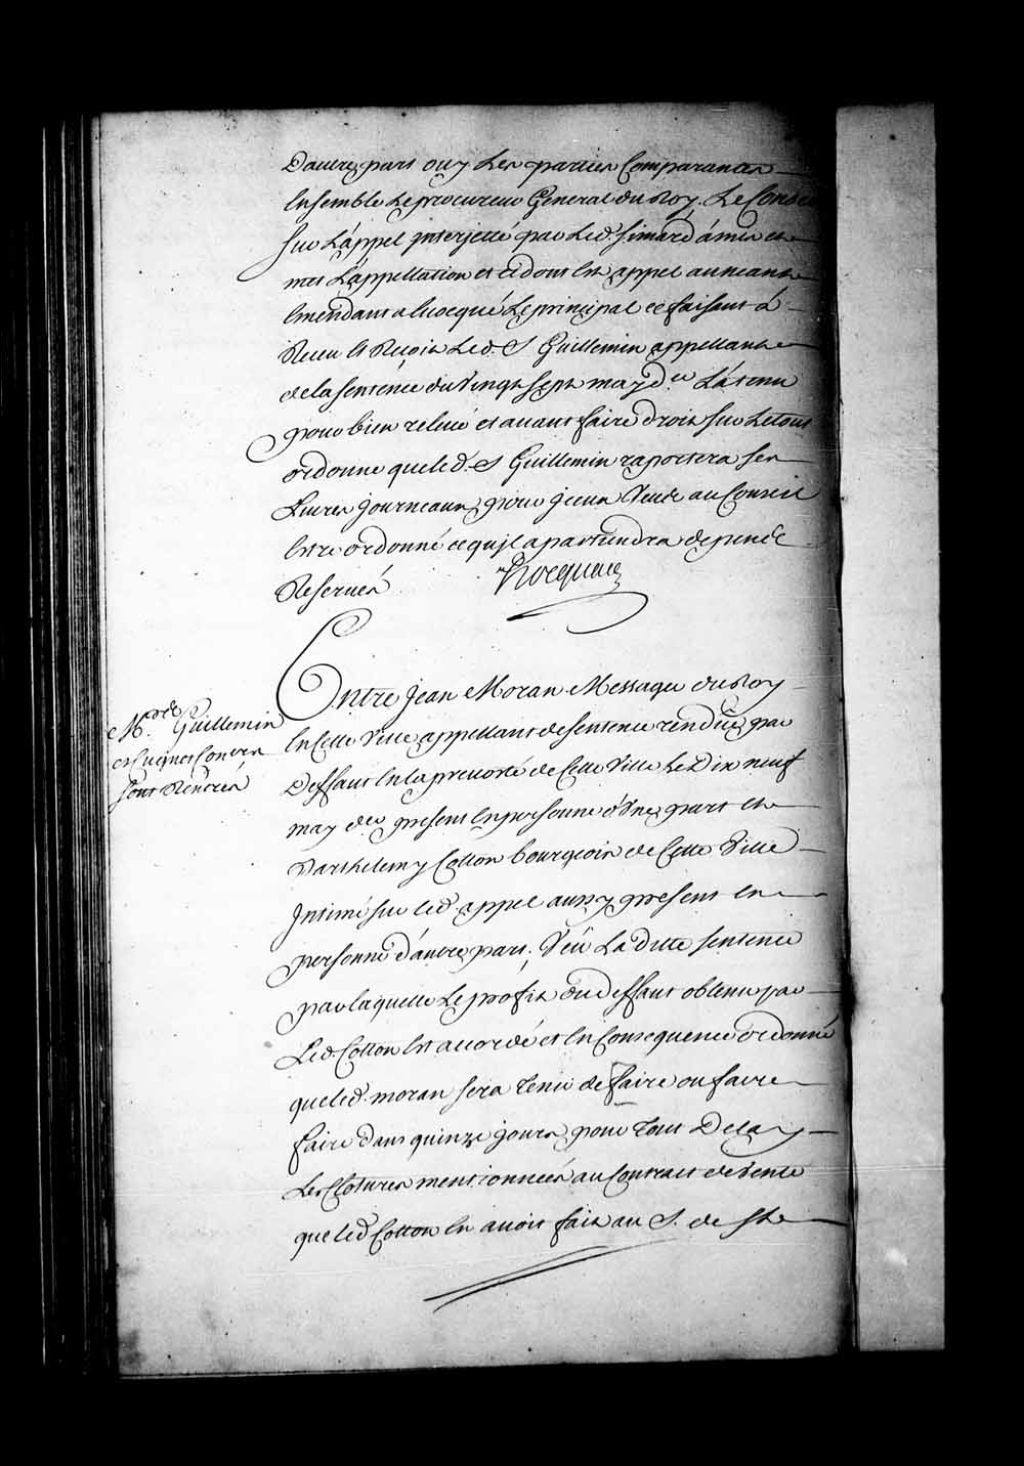 D'autre part ouy Les parties Comparantes
Ensemble Le procureur General du Roy. Le Conseil
sur L'appel interjetté par Led. Simard a mis et
met L'appellation et ce dont Est appel au neant
Emendant a Evoqué Le principal ce faisant a
Receu et Reçoit Led. S Guillemin appellant
de la sentence du Vingt sept may d.er L'a tenu
pour bien relevé et avant faire droit sur Le tout
ordonne que led. S Guillemin raportera ses
Livres journeaux pour jceux Veus au Conseil
Estre ordonné ce qu'jl apartiendra depens
Reservés
Hocquart
M.rs Guillemin
et Cugnet Con.ers
sont Rentrés
Entre Jean Moran Messager du Roy
En Cette Ville appellant de sentence rendüe par
Deffaut En la prevosté de Cette Ville Le Dix neuf
may d.er present En personne d'Une part et
Barthelemy Cotton bourgeois de Cette Ville
Intimé sur led. appel aussy present en
personne d'autre part. Veü La ditte sentence
par laquelle Le profit du deffaut obtenu par
Led. Cotton Est accordé et En Consequence ordonné
que led. moran sera tenu de faire ou faire
faire dans quinze jours pour Tout Delay
Les Clotures mentionnées au Contract de Vente
que led Cotton En avoit fait au S. de Ste